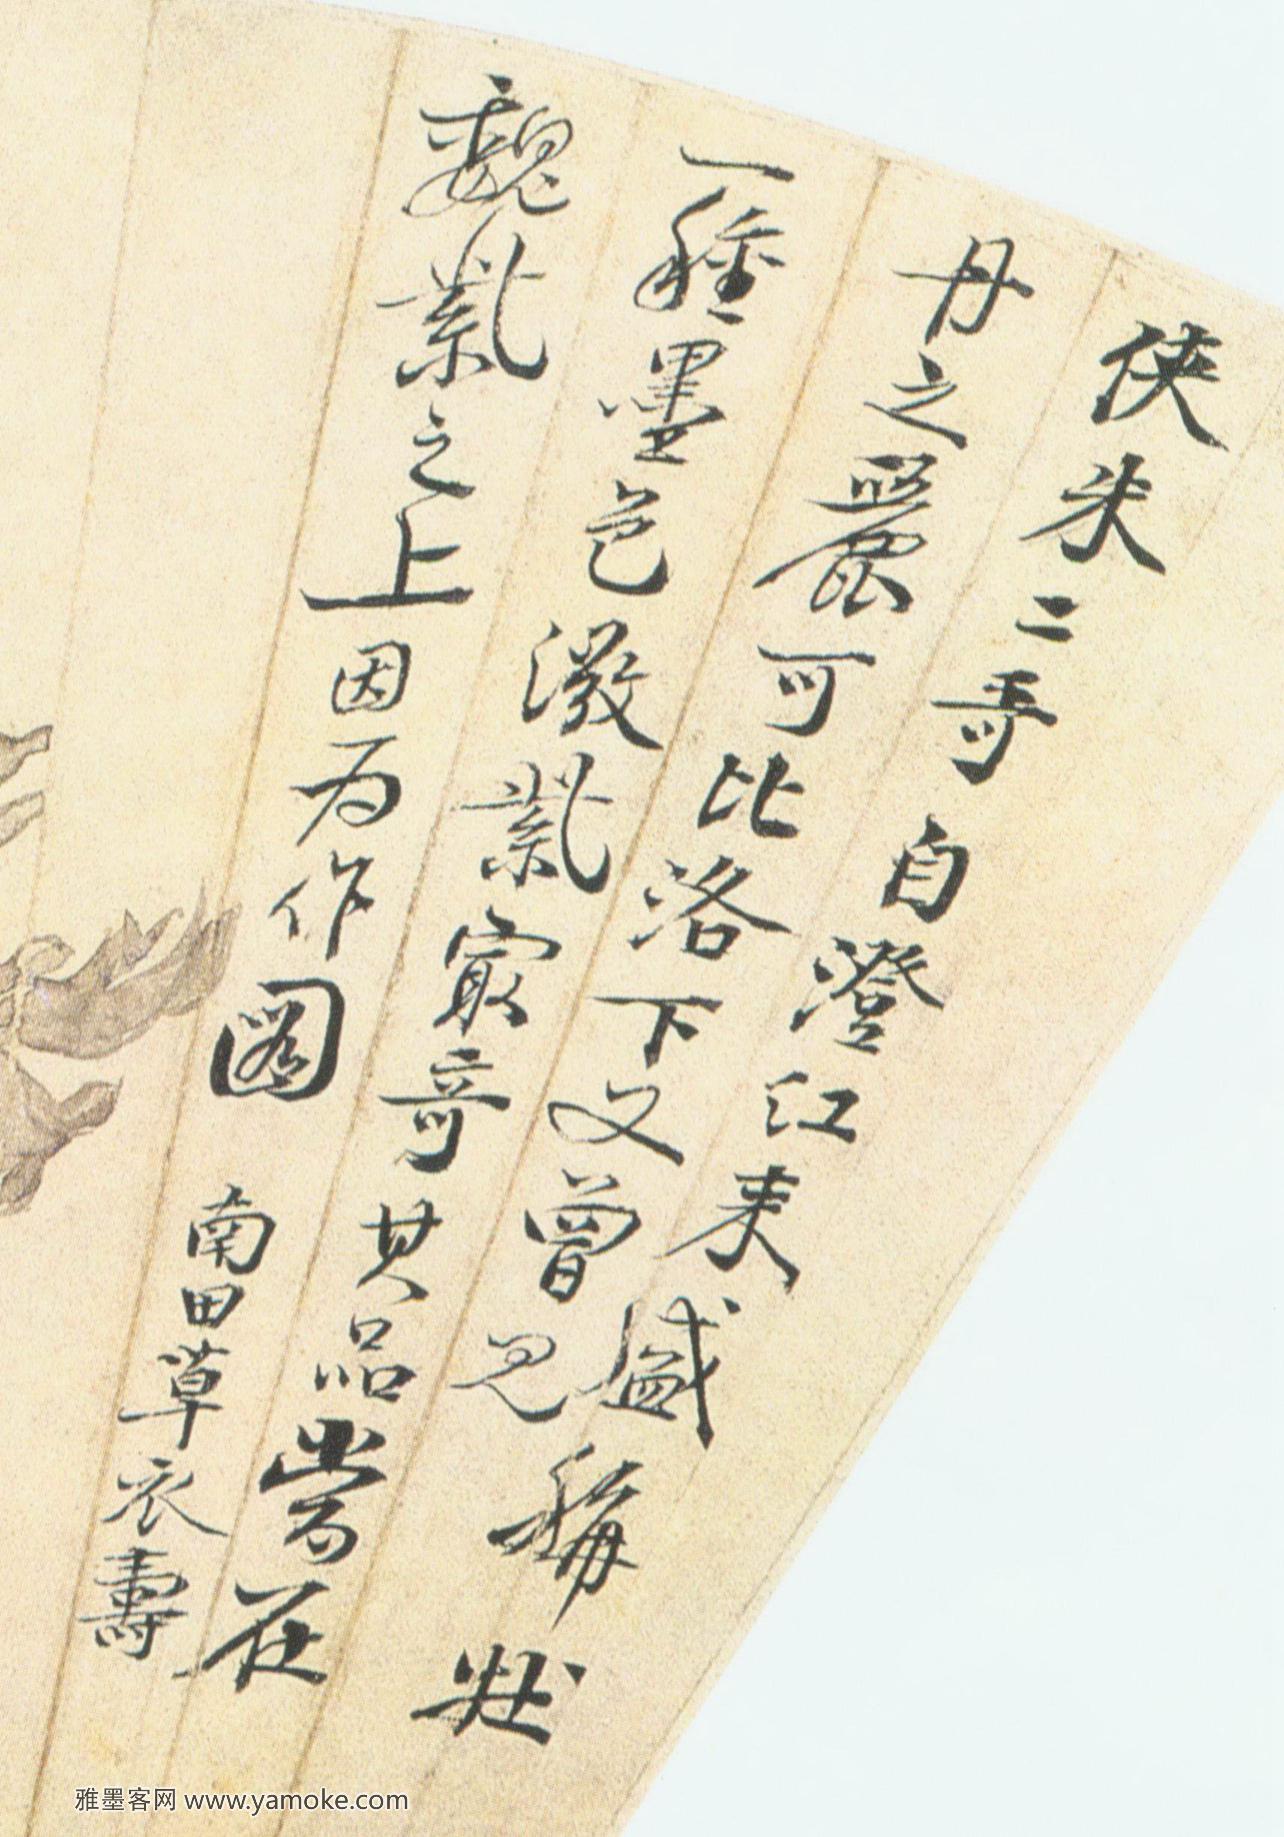 侠朱二哥自澄江来盛稱牡
丹之麗可比洛下又曾見
一種墨色潑紫最奇其品當在
魏紫之上因為作圖
南田草衣壽
雅墨客网 www.yamoke.com